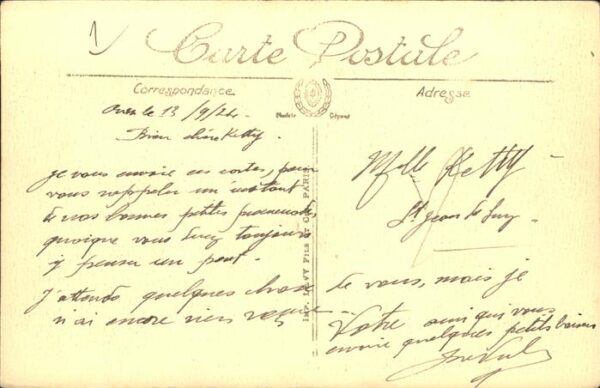 1
Carte Postale
Correspondance
Adresse
le 13/9/24.
Bien chère Ketty.
je vous envoie ces cartes, pour
vous rappeler un instant
de nos bonnes petites promenades,
quoique vous toujours
y penser un peut.
J'attends quelques chose de vous, mais je
n'ai encore rien reçue.
Votre ami qui vous
envoie quelques petits baisers
Melle Ketty
St Jean de Luz
IMP. LEVY FILS ET CIE, PARIS